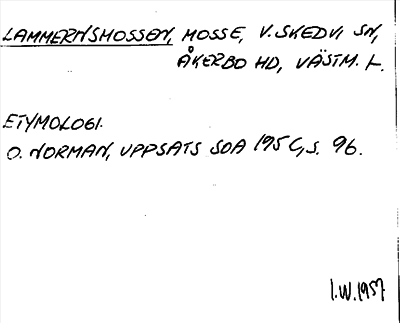 LAMMERNSMOSSEN, MOSSE, V. SKEDVI SN,
ÅKERBO HD, VÄSTM. L.
ETYMOLOGI.
O. NORMAN, UPPSATS SOA 195 C, S. 96.
I.W. 1957